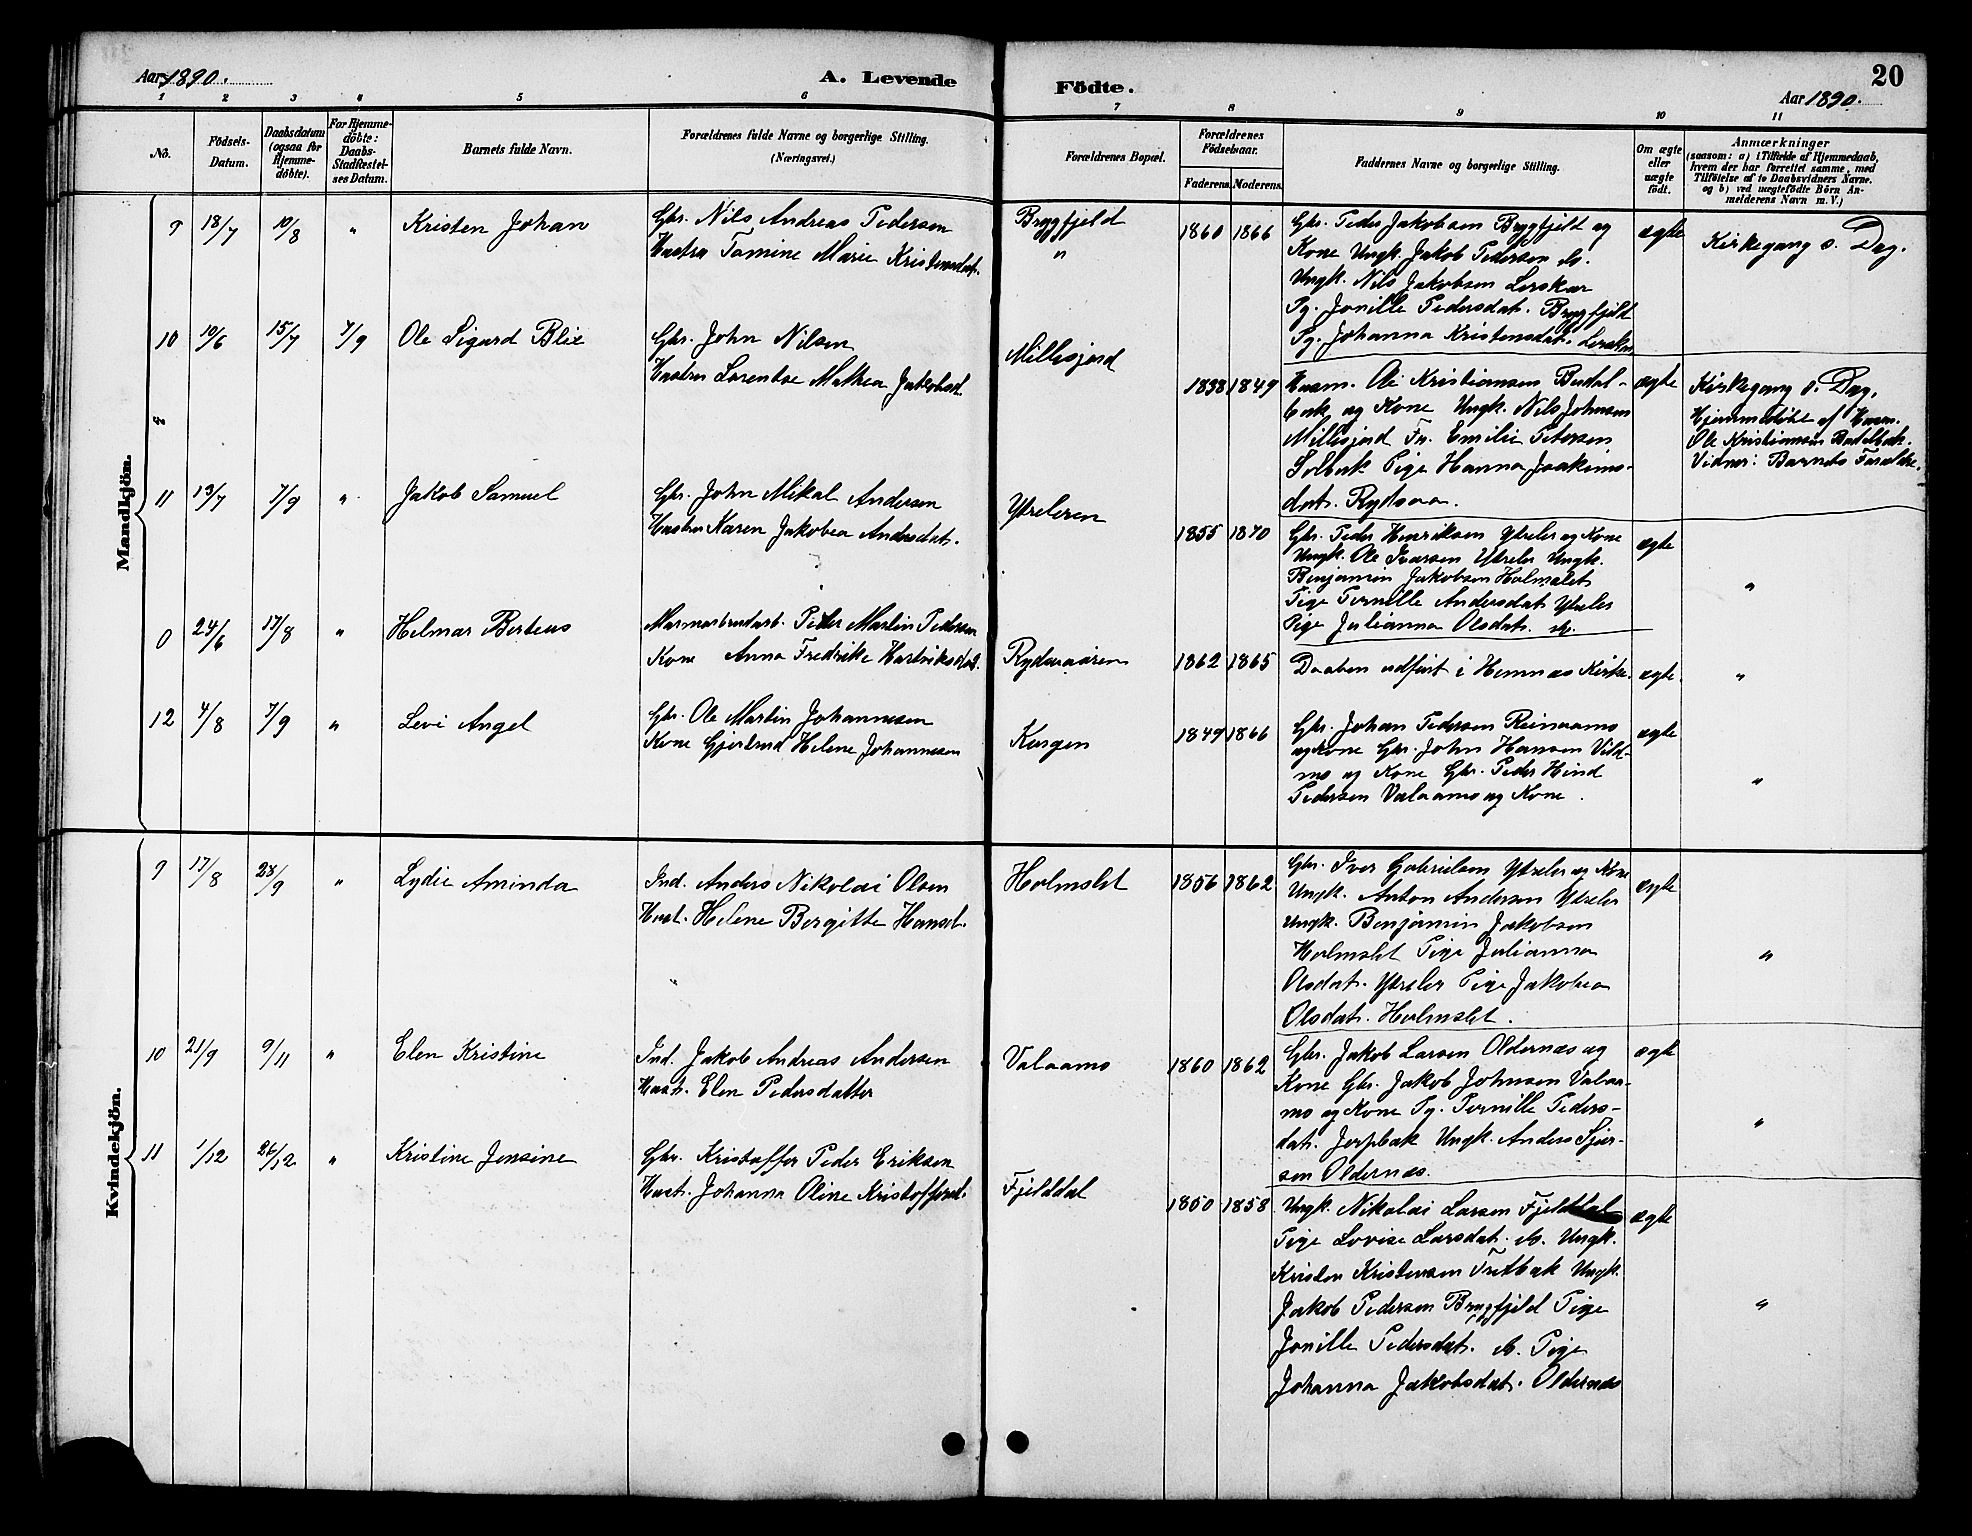 Aar 1890.
A. Levende
Födte.
20
Aar 1890.
1 2 3 4 5 6 7 8 9 10 11
No.
Födsels-
Datum.
Daabsdatum
(ogsaa for
Hjemme-
döbte).
For Hjemme-
döbte:
Daabs-
Stadfæstel-
ses Datum.
Barnets fulde Navn.
Forældrenes fulde Navne og borgerlige Stilling.
(Næringsvei.)
Forældrenes Bopæl.
Forældrenes
Födselsaar.
Faderens. Moderens.
Faddernes Navne og borgerlige Stilling.
Om ægte
eller
uægte
födt.
Anmærkninger
(saasom: a) i Tilfælde af Hjemmedaab,
hvem der har forrettet samme, med
Tilföielse af to Daabsvidners Navne.
og b) ved uægtefödte Börn An-
melderens Navn m. V.)
Mandkjön.
9 18/7 10/8 " Kristen Johan
Gbr. Nils Andreas Pedersen
Hustru Tomine Marie Kristensdat.
Brygfjeld
"
1860 1866
Gbr. Peder Jakobsen Brygfjeld og
Kone Ungk. Jakob Pedersen do.
Ungk. Nils Jakobsen Lerskar
Pg. Jonille Pedersdat. Brygfjeld
Pg. Johanna Kristensdat. Lerskar
ægte
Kirkegang s. Dag.
10 10/6 15/7 7/9 Ole Sigard Blix
Gbr. John Nilsen
Hustru Lorentse Mathea Jakobsd.
Millisjord
1838 1849
Husm. Ole Kristiansen Budal-
bak og Kone Ungk. Nils Johnsen
Millisjord Fr. Emilie Petersen
Solbak Pige Hanna Joakims-
dat. Rydsaa.
ægte
Kirkegang s. Dag.
Hjemmedöbt af Husm.
Ole Kristiansen Budalbak.
Vidner: Barnets Forældre.
11 13/7 7/9 " Jakob Samuel
Gbr. John Mikal Andersen
Hustru Karen Jakobea Andersdat.
Ytreleren
1855 1870
Gbr. Peder Henriksen Ytreler og Kone
Ungk. Ole Ivarsen Ytreler Ungk.
Benjamin Jakobsen Holmslet
Pige Pernille Andersdat. Ytreler
Pige Julianna Olsdat. do.
ægte
"
0 24/6 17/8 " Helmar Berteus
Marmorbrudarb. Peder Martin Pedersen
Kone Anna Fredrikke Hartviksdat.
Rydsaaren
1862 1865
Daaben udfört i Hemnæs Kirke.
ægte.
"
12 4/8 7/9 " Levi Angel
Gbr. Ole Martin Johannesen
Kone Gjertrud Helene Johannesen
Kangen
1849 1866
Gbr. Johan Pedersen Reinaamo
og Kone Gbr. John Hansen Vild-
mo og Kone Gbr. Peder Hind
Pedersen Valaamo og Kone.
ægte
"
Kvindekjön.
9 17/8 28/9 " Lydie Aminda
Ind. Anders Nikolai Olsen
Hust. Helene Bergitte Hansd.
Holmslet
1856 1862
Gbr. Iver Gabrielsen Ytreler og Kone
Ungk. Anton Andersen Ytreler
Ungk. Benjamin Jakobsen
Holmslet Pige Julianna
Olsdat. Ytreler Pige Jakobea
Olsdat. Holmslet.
ægte
"
10 21/9 9/11 " Elen Kristine
Ind. Jakob Andreas Andersen
Hust. Elen Pedersdatter
Valaamo
1860 1862
Gbr. Jakob Larsen Oldernæs og
Kone Gbr. Jakob Johnsen Valaa-
mo og Kone Pg. Pernille Peders-
dat. Jerpbak Ungk. Anders Sjur-
sen Oldernæs.
ægte
"
11 1/12 26/12 " Kristine Jensine
Gbr. Kristoffer Peder Eriksen
Hust. Johanna Oline Kristoffersd.
Fjelddal
1850 1858
Ungk. Nikolai Larsen Fjelddal
Pige Lovise Larsdat. do. Ungk.
Kristen Kristensen Tretbak Ungk.
Jakob Pedersen Brygfjeld Pige
Jonille Pedersdat. do. Pige
Johanna Jakobsdat. Oldernæs
ægte
"